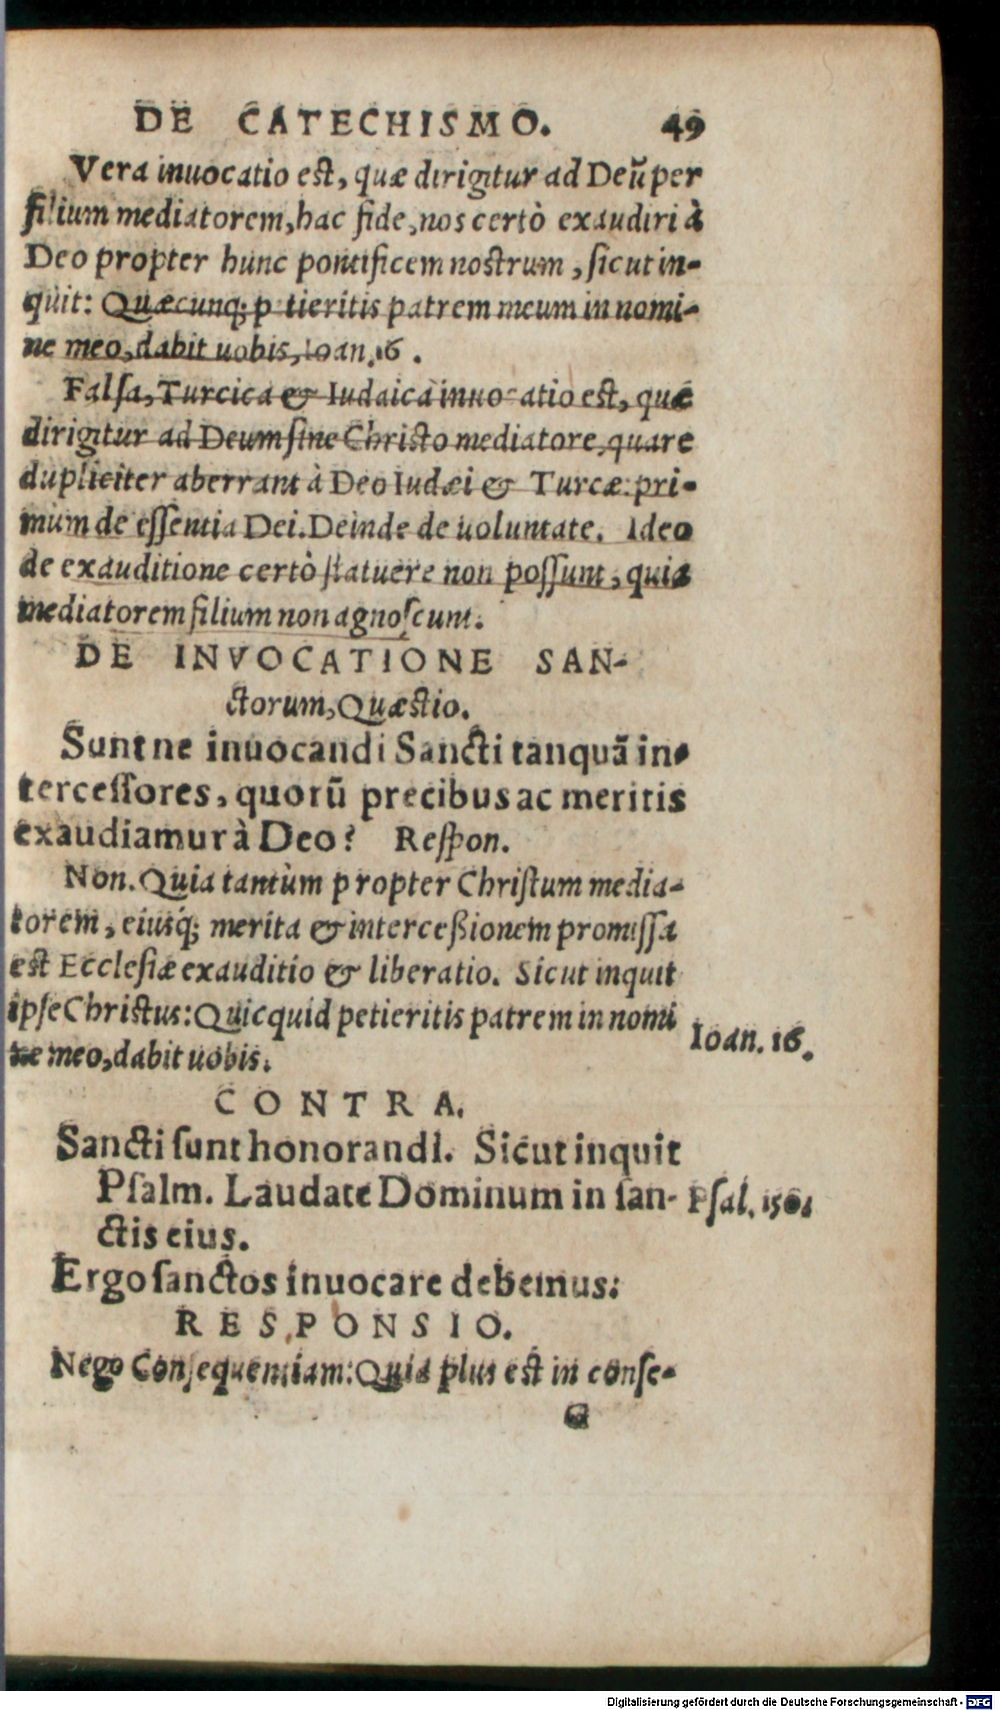 DE CATECHISMO. 49
Vera inuocatio est, quæ dirigitur ad Deũ per
filium mediatorem, hac fide, nos certò exaudiri à
Deo propter hunc pontificem nostrum, sicut in-
quit: Quæcunq; petieritis patrem meum in nomi-
ne meo, dabit uobis, Ioan. 16.
Falsa, Turcica & Iudaica inuocatio est, quæ
dirigitur ad Deum sine Christo mediatore, quare
dupliciter aberrant à Deo Iudæi & Turcæ: pri-
mùm de essentia Dei. Deinde de uoluntate. Ideo
de exauditione certò statuere non possunt, quia
mediatorem filium non agnoscunt.
DE INVOCATIONE SAN-
ctorum, Quæstio.
Suntne inuocandi Sancti tanquã in-
tercessores, quorũ precibus ac meritis
exaudiamur à Deo? Respon.
Non. Quia tantùm propter Christum media-
torem, eiusq́; merita & interceßionem promissa
est Ecclesiæ exauditio & liberatio. Sicut inquit
ipse Christus: Quicquid petieritis patrem in nomi
ne meo, dabit uobis.
Ioan. 16.
CONTRA.
Sancti sunt honorandi. Sicut inquit
Psalm. Laudate Dominum in san-
Psal. 150.
ctis eius.
Ergo sanctos inuocare debemus:
RESPONSIO.
Nego Consequentiam: Quia plus est in conse-
G
Digitalisierung gefördert durch die Deutsche Forschungsgemeinschaft - DFG